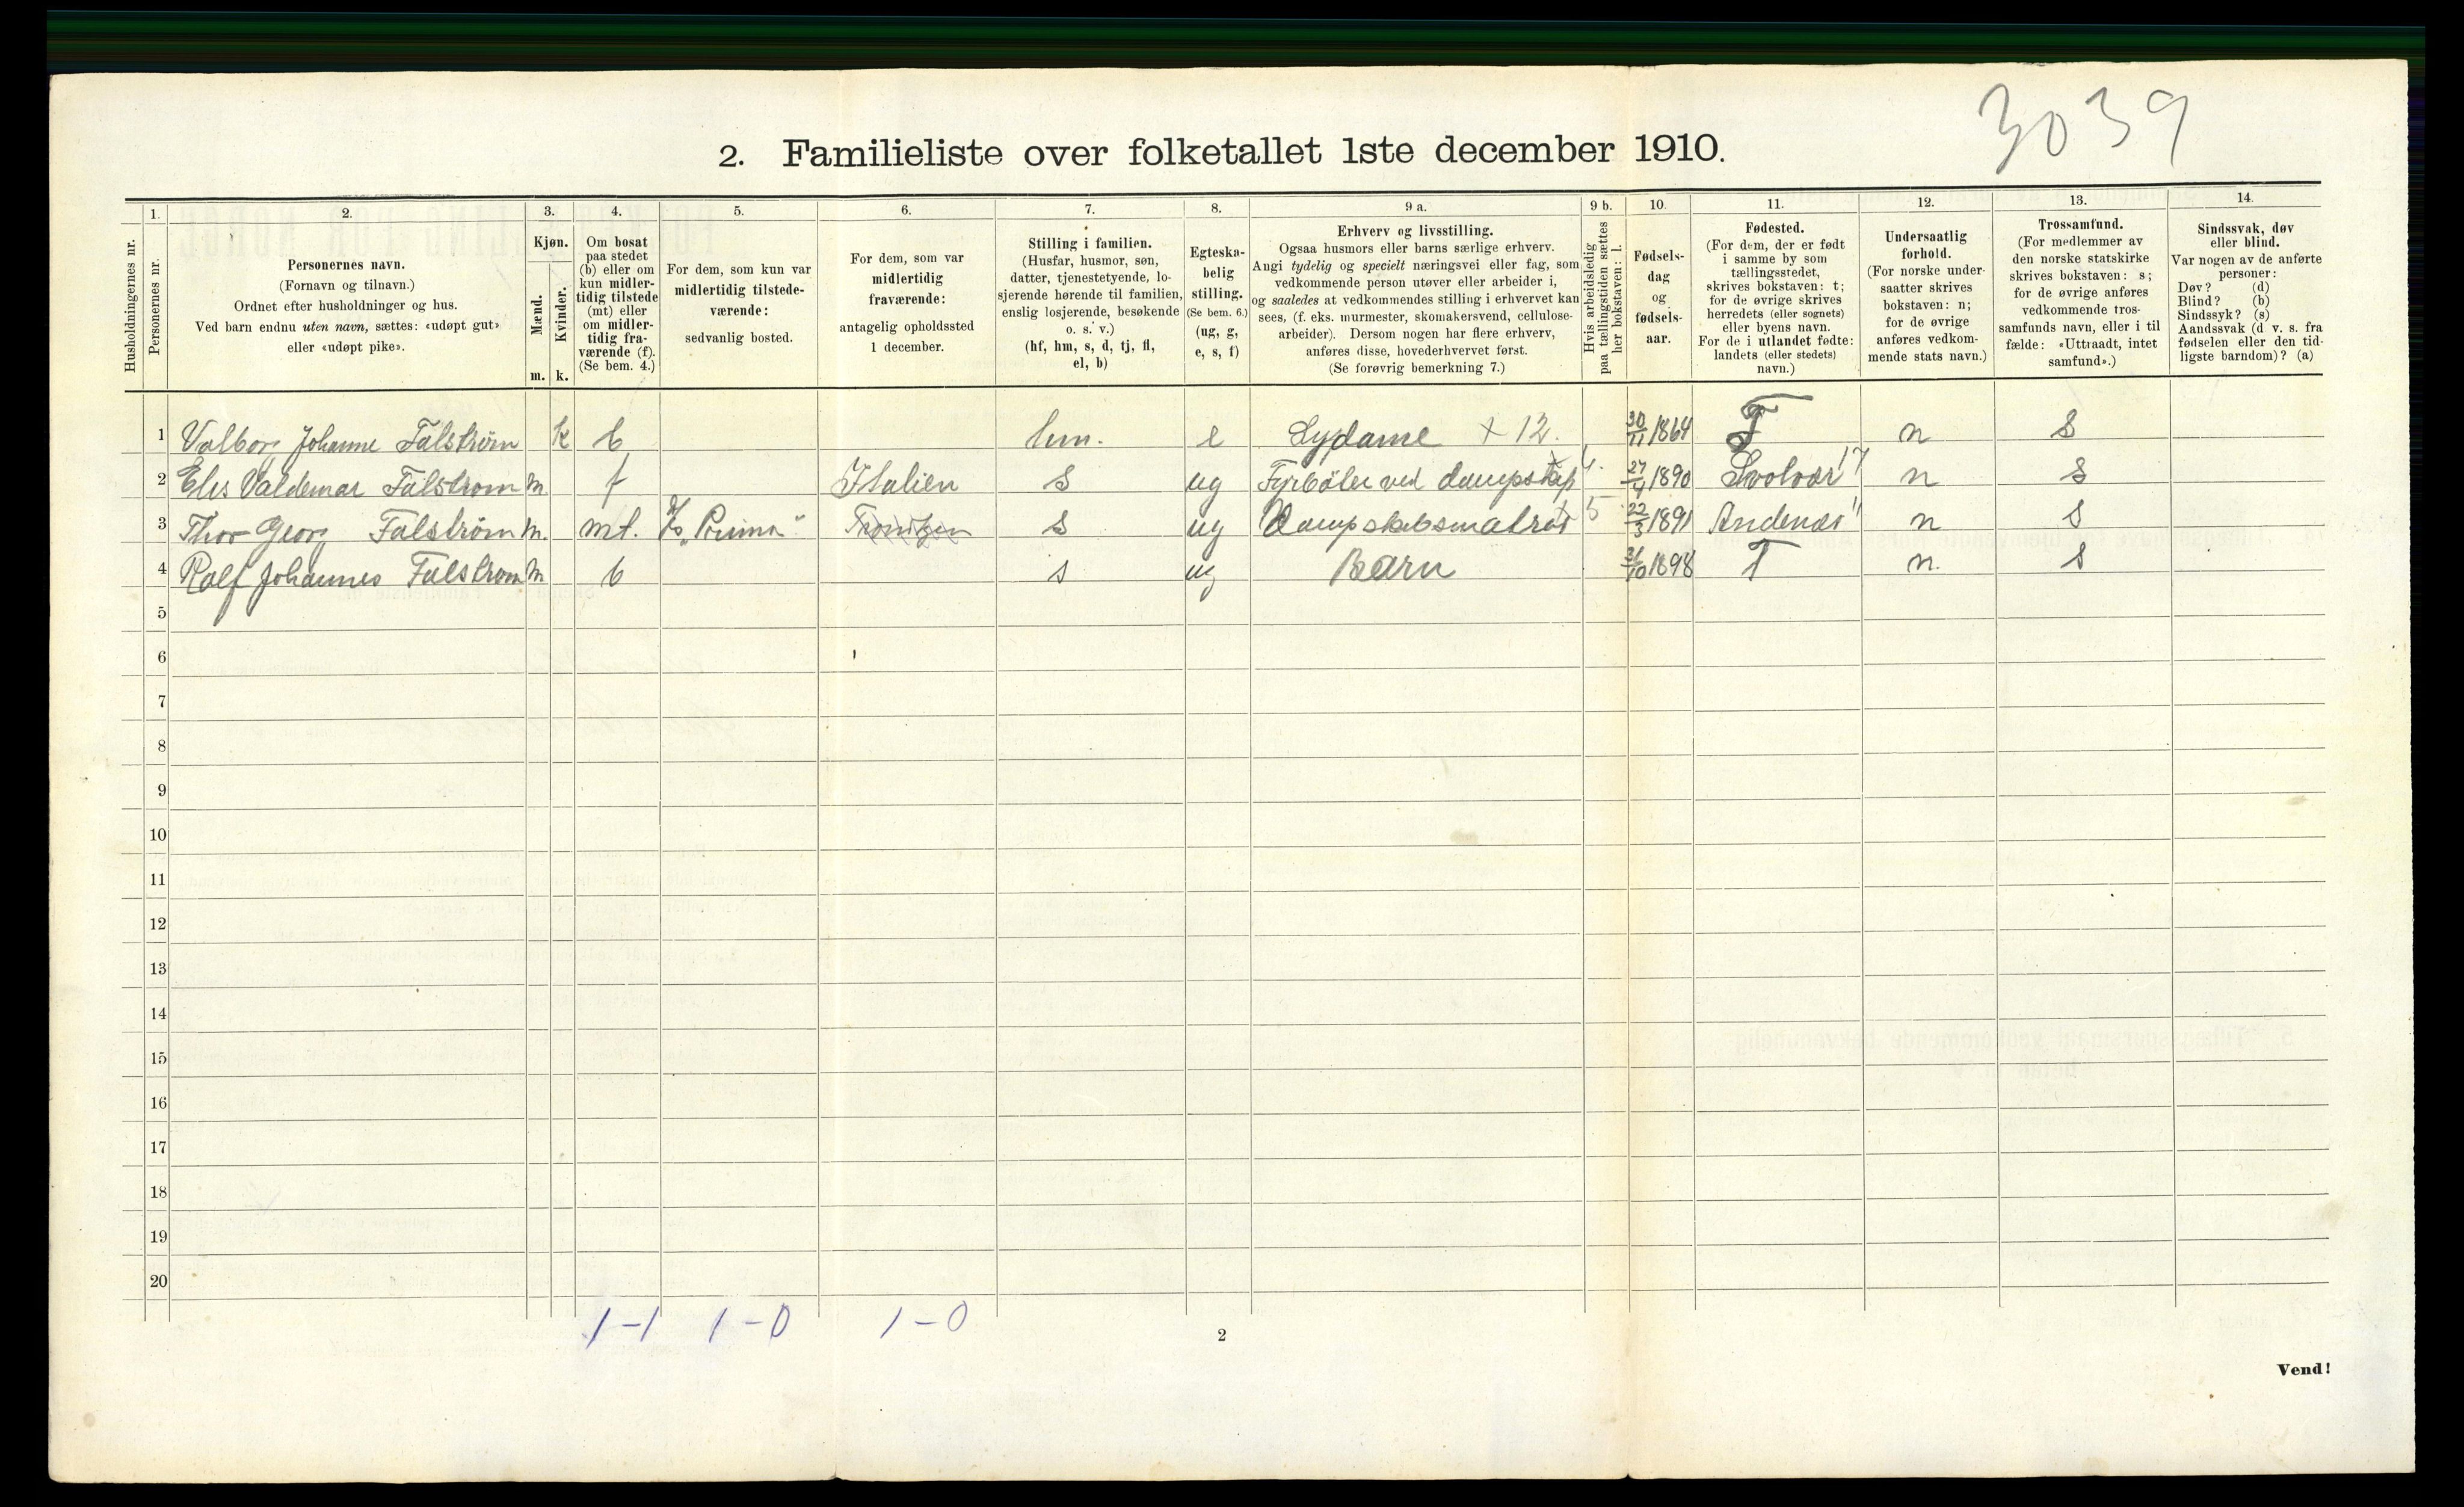 3039
2. Familieliste over folketallet 1ste december 1910.
Husholdningernes nr.
1. Personernes nr.
2.
Personernes navn.
(Fornavn og tilnavn.)
Ordnet efter husholdninger og hus.
Ved barn endnu uten navn, sættes: «udøpt gut»
eller «udøpt pike».
3.
Kjøn.
Mænd. Kvinder.
m. k.
4.
Om bosat
paa stedet
(b) eller om
kun midler-
tidig tilstede
(mt) eller
om midler-
tidig fra-
værende (f).
(Se bem. 4.)
5.
For dem, som kun var
midlertidig tilstede-
værende:
sedvanlig bosted.
6.
For dem, som var
midlertidig
fraværende:
antagelig opholdssted
1 december.
7.
Stilling i familien.
(Husfar, husmor, søn,
datter, tjenestetyende, lo-
sjerende hørende til familien,
enslig losjerende, besøkende
o. s. v.)
(hf, hm, s, d, tj, fl,
el, b)
8.
Egteska-
belig
stilling.
(Se bem. 6.)
(ug, g,
e, s, f)
9 a.
Erhverv og livsstilling.
Ogsaa husmors eller barns særlige erhverv.
Angi tydelig og specielt næringsvei eller fag, som
vedkommende person utøver eller arbeider i,
og saaledes at vedkommendes stilling i erhvervet kan
sees, (f. eks. murmester, skomakersvend, cellulose-
arbeider). Dersom nogen har flere erhverv,
anføres disse, hovederhvervet først.
(Se forøvrig bemerkning 7.)
9 b.
Hvis arbeidsledig
paa tællingstiden sættes
her bokstaven: l.
10.
Fødsels-
dag
og
fødsels-
aar.
11.
Fødested.
(For dem, der er født
i samme by som
tællingsstedet,
skrives bokstaven: t;
for de øvrige skrives
herredets (eller sognets)
eller byens navn.
For de i utlandet fødte:
landets (eller stedets)
navn.)
12.
Undersaatlig
forhold.
(For norske under-
saatter skrives
bokstaven: n;
for de øvrige
anføres vedkom-
mende stats navn.)
13.
Trossamfund.
(For medlemmer av
den norske statskirke
skrives bokstaven: s;
for de øvrige anføres
vedkommende tros-
samfunds navn, eller i til
fælde: «Uttraadt, intet
samfund».)
14.
Sindssvak, døv
eller blind.
Var nogen av de anførte
personer:
Døv? (d)
Blind? (b)
Sindssyk? (s)
Aandssvak (d. v. s. fra
fødselen eller den tid-
ligste barndom)? (a)
1 Valborg Johanne Falstrøm k b hm. e Sydame + 12. 30/11 1864 T n S
2 Elis Valdemar Falstrøm m. f Italien s ug Fyrbøter ved dampskip 4. 27/4 1890 Svolvær 17 n S
3 Thor Georg Falstrøm m. mt. "Prima" s ug Dampskibsmatros 5 22/3 1891 Andenæs n S
4 Ralf Johannes Falstrøm m b s ug Barn 31/10 1898 T n. S
5
6
7
8
9
10
11
12
13
14
15
16
17
18
19
20
1-1 1-0 1-0
2
Vend!